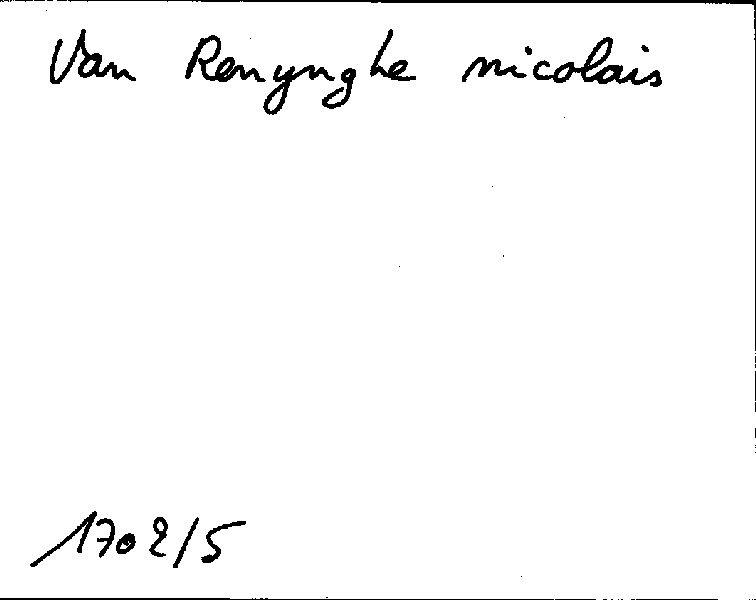 Van Renynghe nicolais
1702/5